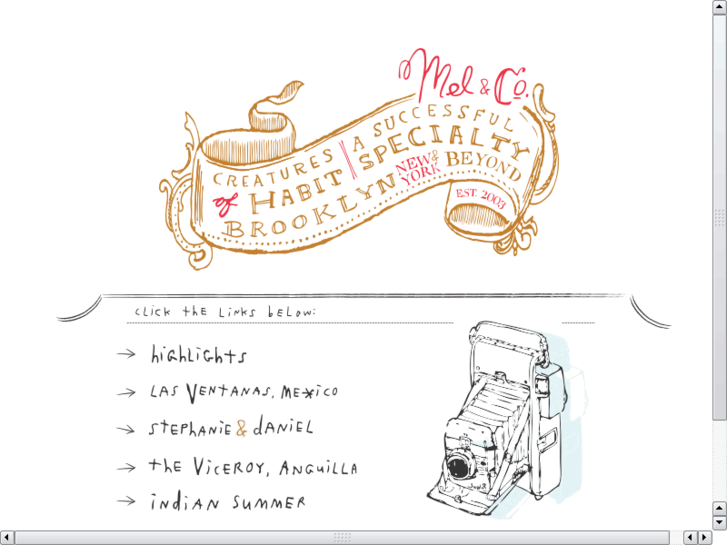 Mel & Co.
CREATURES of HABIT BROOKLYN
A SUCCESSFUL SPECIALTY
NEW & YORK BEYOND
EST. 2003
click the links below:
highlights
LAS VENTANAS, MEXICO
stephanie & daniel
the Viceroy, Anguilla
indian summer